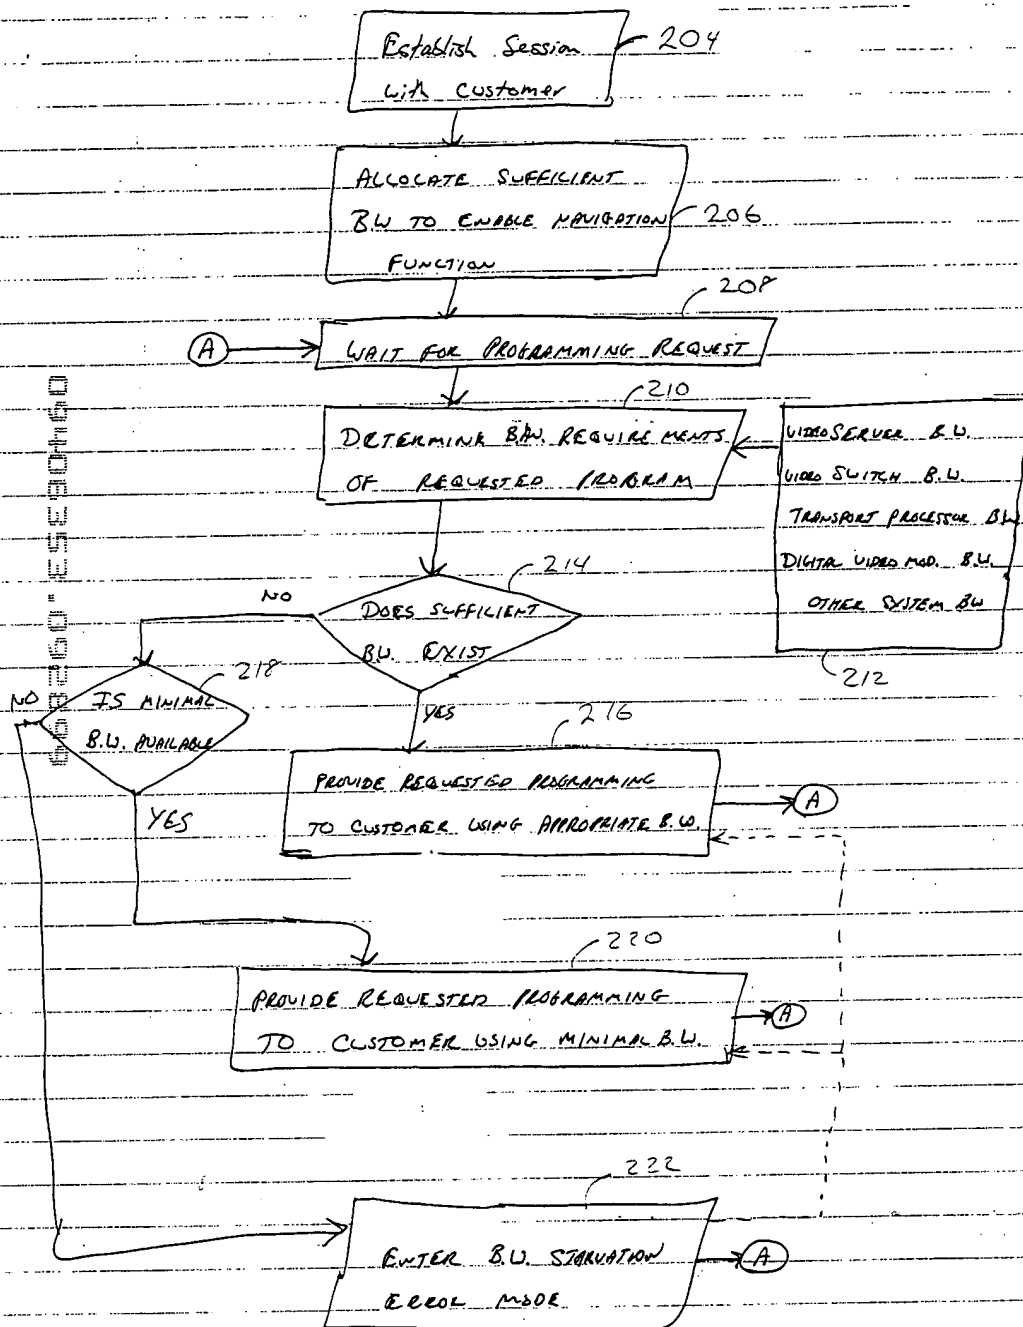 Establish Session
with Customer
204
ALLOCATE SUFFICIENT
B.W TO ENABLE NAVIGATION
FUNCTION
206
208
A
WAIT FOR PROGRAMMING REQUEST
210
DETERMINE B.W. REQUIREMENTS
OF REQUESTED PROGRAM
VIDEO SERVER B.W.
VIDEO SWITCH B.W.
TRANSPORT PROCESSOR BW
DIGITAL VIDEO MOD. B.W.
OTHER SYSTEM BW
212
214
NO
DOES SUFFICIENT
B.W. EXIST
218
NO
IS MINIMAL
B.W. AVAILABLE
YES
YES
216
PROVIDE REQUESTED PROGRAMMING
TO CUSTOMER USING APPROPRIATE B.W.
A
220
PROVIDE REQUESTED PROGRAMMING
TO CUSTOMER USING MINIMAL B.W.
A
222
ENTER B.W. STARVATION
ERROR MODE
A